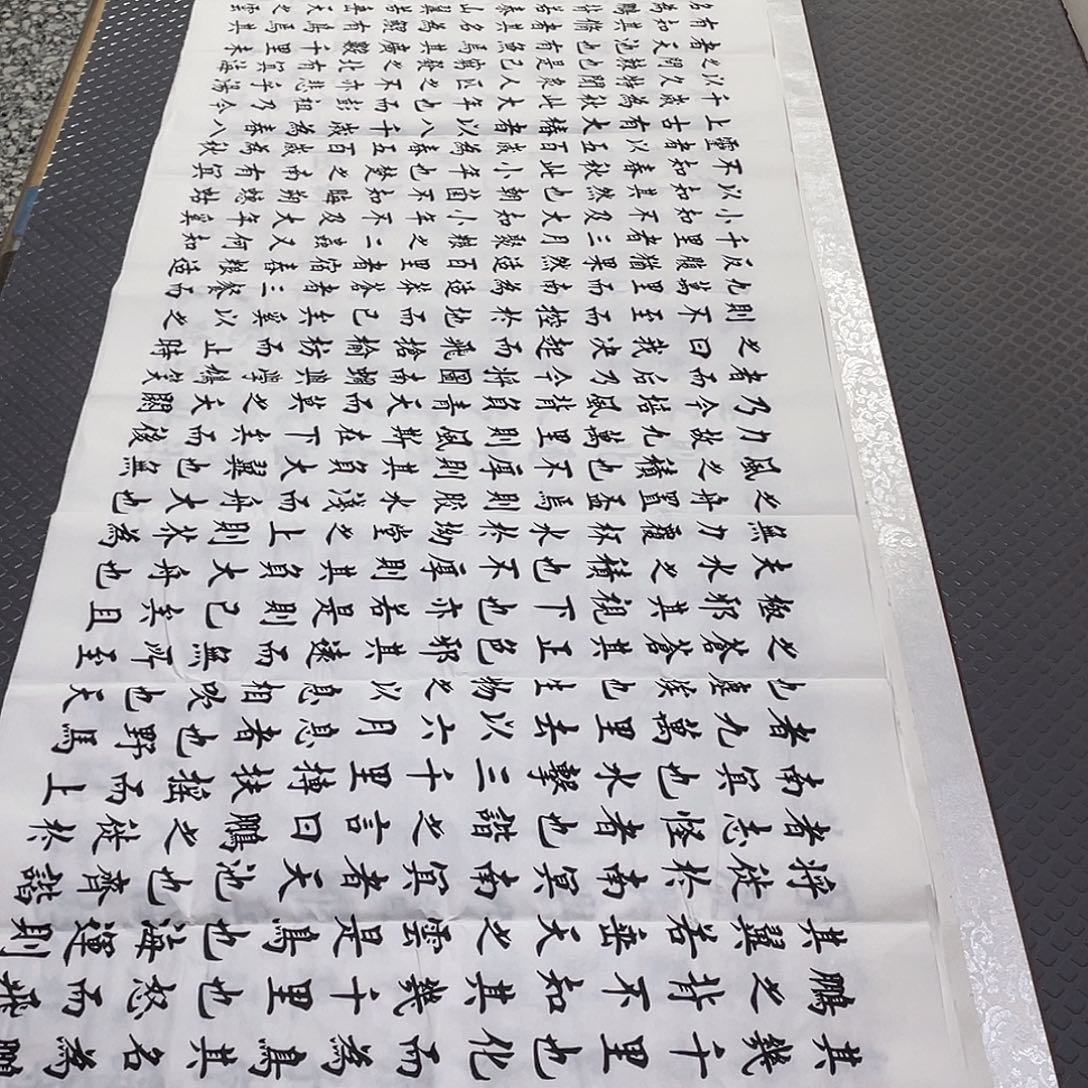 其幾千里也化而為鳥其名為鵬
鵬之背不知其幾千里也怒而飛
其翼若垂天之雲是鳥也海運則
將徙於南冥南冥者天池也齊諧
者志怪者也諧之言曰鵬之徙於
南冥也水擊三千里摶扶搖而上
者九萬里去以六月息者也野馬
也塵埃也生物之以息相吹也天
之蒼蒼其正色邪其遠而無所至
極邪其視下也亦若是則已矣且
夫水之積也不厚則其負大舟也
無力覆杯水於坳堂之上則芥為
之舟置盃焉則膠水淺而舟大也
風之積也不厚則其負大翼也無
力故九萬里則風斯在下矣而後
乃今培風背負青天而莫之夭閼
者而後乃今將圖南蜩與學鳩笑
之曰我決起而飛搶榆枋而止時
則不至而控於地而已矣奚以之
九萬里而南為適莽蒼者三餐而
反腹猶果然適百里者宿舂糧適
千里者三月聚糧之二蟲又何知
小知不及大知小年不及大年奚
以知其然也朝菌不知晦朔蟪蛄
不知春秋此小年也楚之南有冥
靈者以五百歲為春五百歲為秋
上古有大椿者以八千歲為春八
千歲為秋此大年也而彭祖乃今
以久特聞眾人匹之不亦悲乎湯
之問棘也是已窮髮之北有冥海
者天池也有魚焉其廣數千里未
有知其脩者其名為鯤有鳥焉其
名為鵬背若泰山翼若垂天之雲